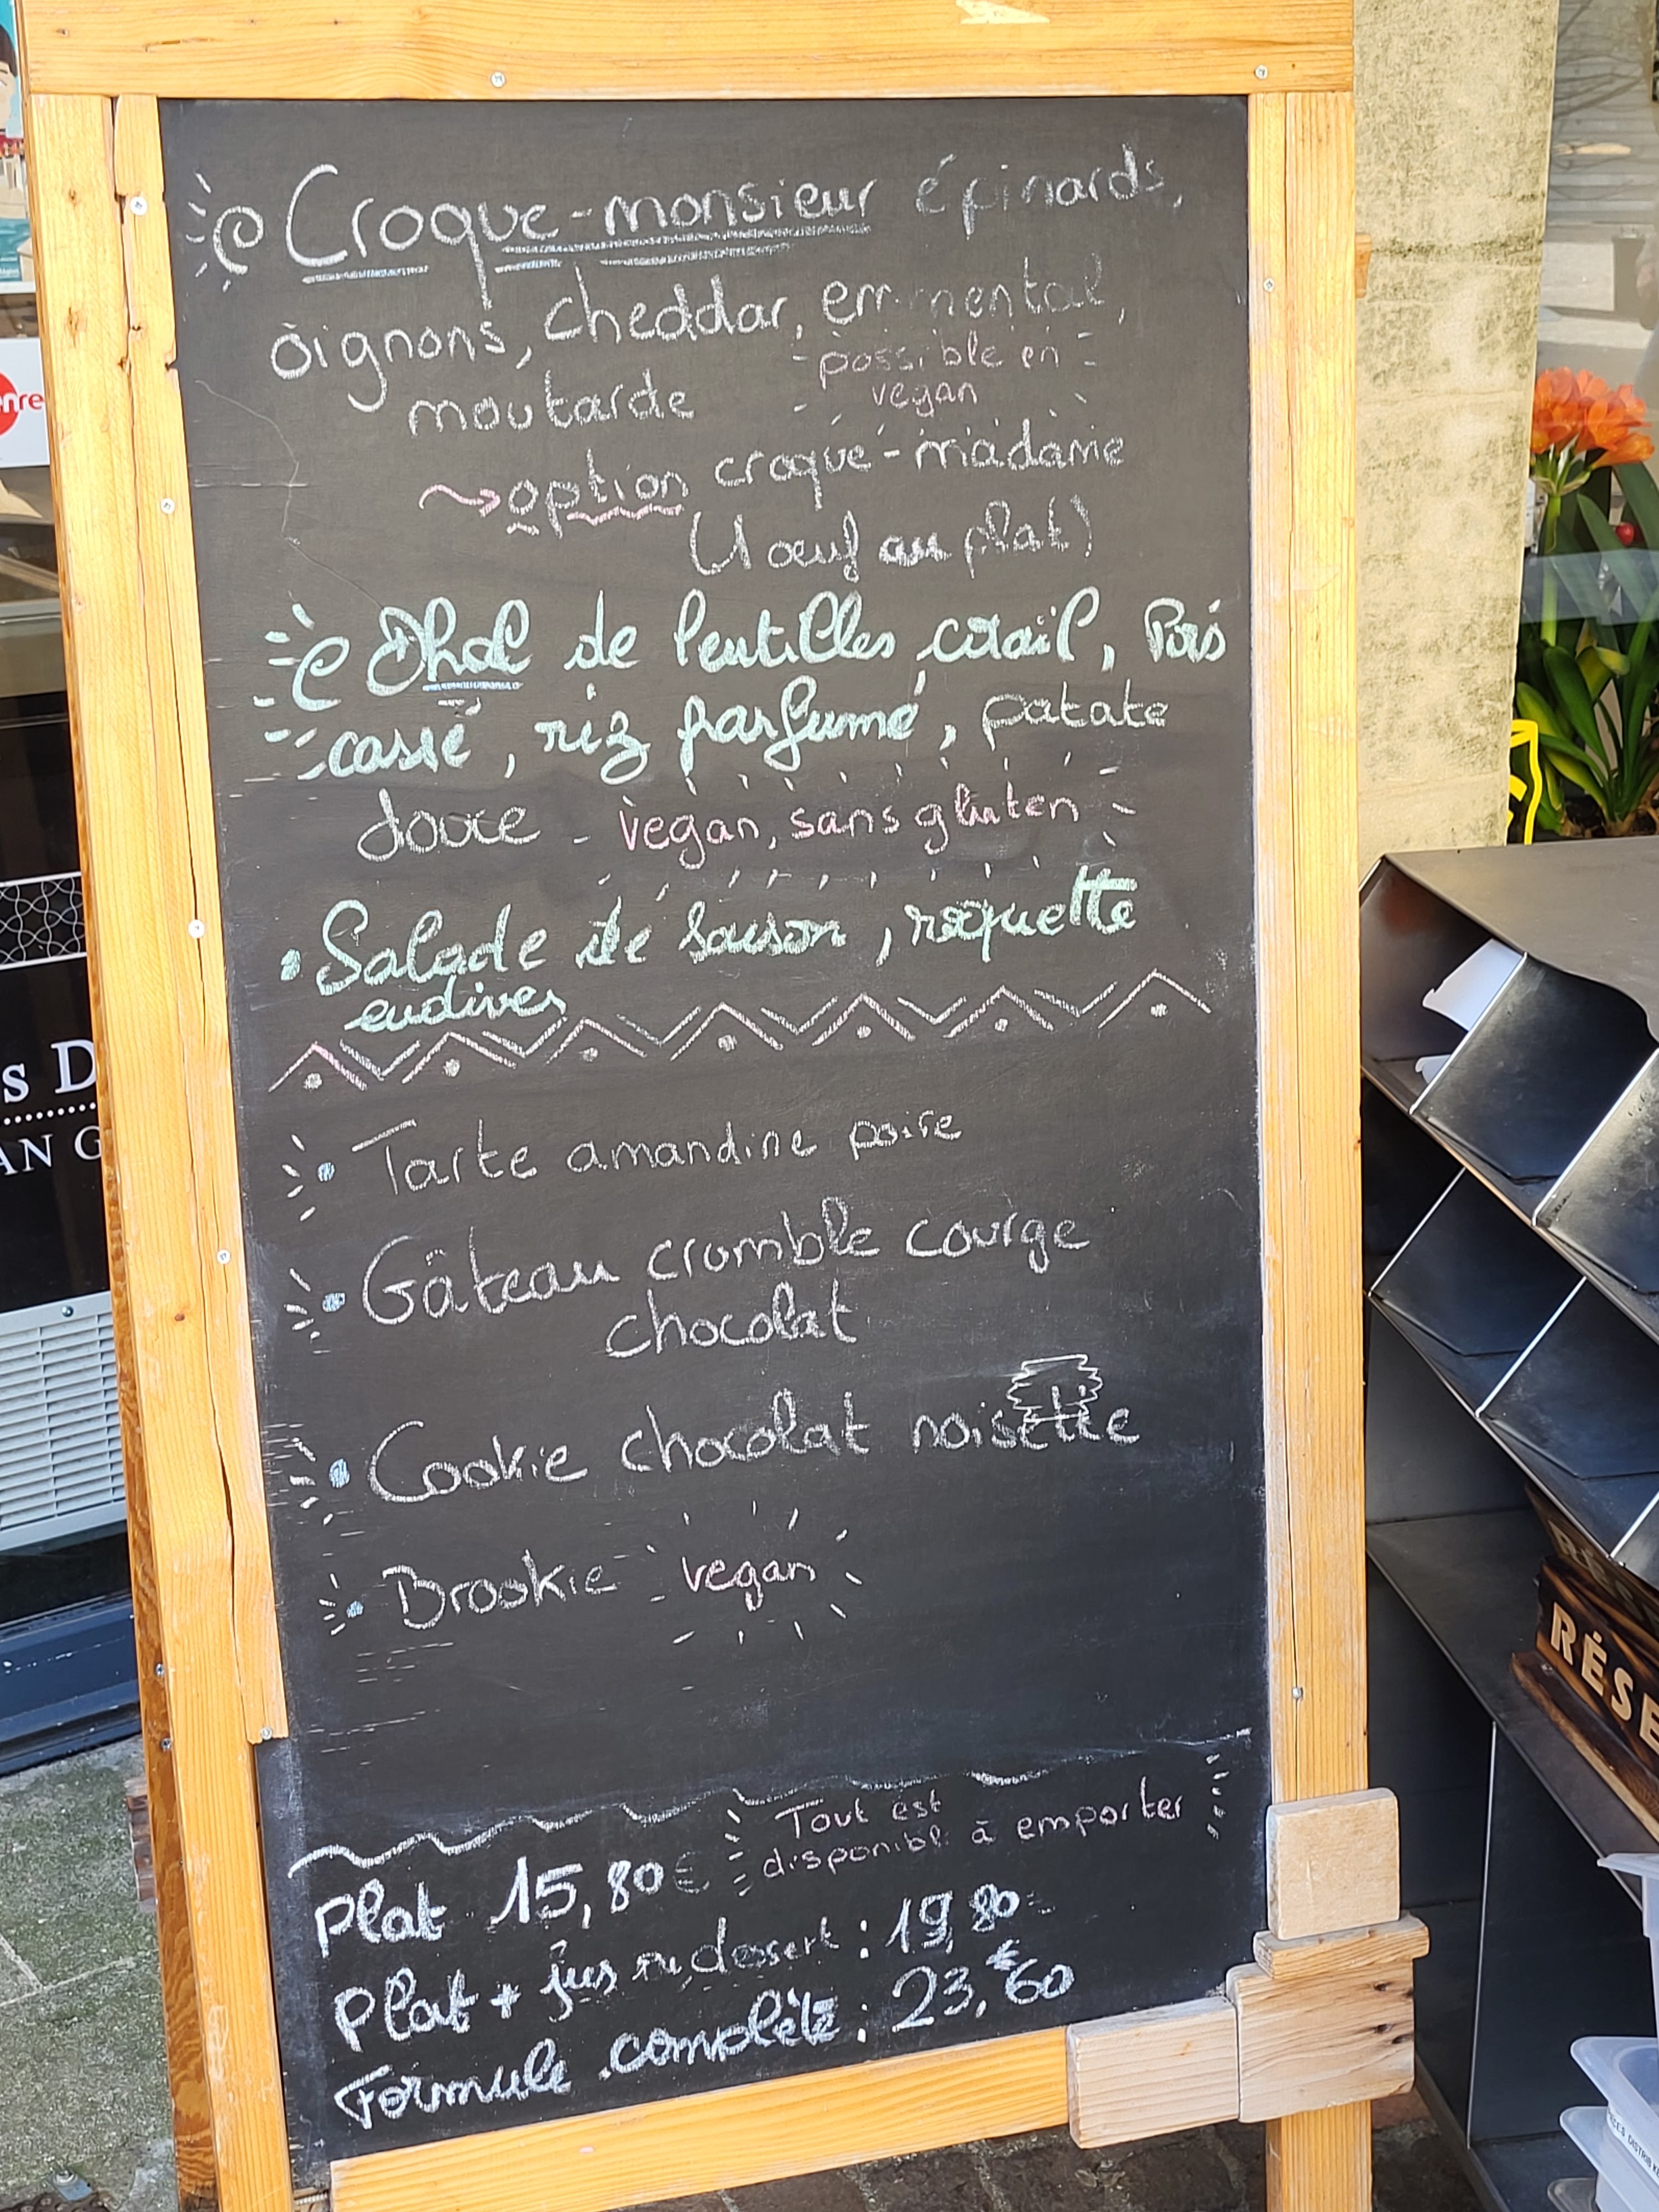 Croque-monsieur épinards,
oignons, cheddar, emmental,
possible en
vegan
moutarde
option croque-madame
(1 œuf au plat)
Dhal de lentilles corail, Pois
cassé, riz parfumé, patate
douce - vegan, sans gluten
• Salade de saison, roquette
endives
• Tarte amandine poire
• Gâteau crumble courge
chocolat
• Cookie chocolat noisette
• Brookie vegan
Tout est
disponible à emporter
Plat 15,80€
Plat + jus ou dessert : 19,80
Formule complète : 23,60€
nre
S D
AN G
RÉSE